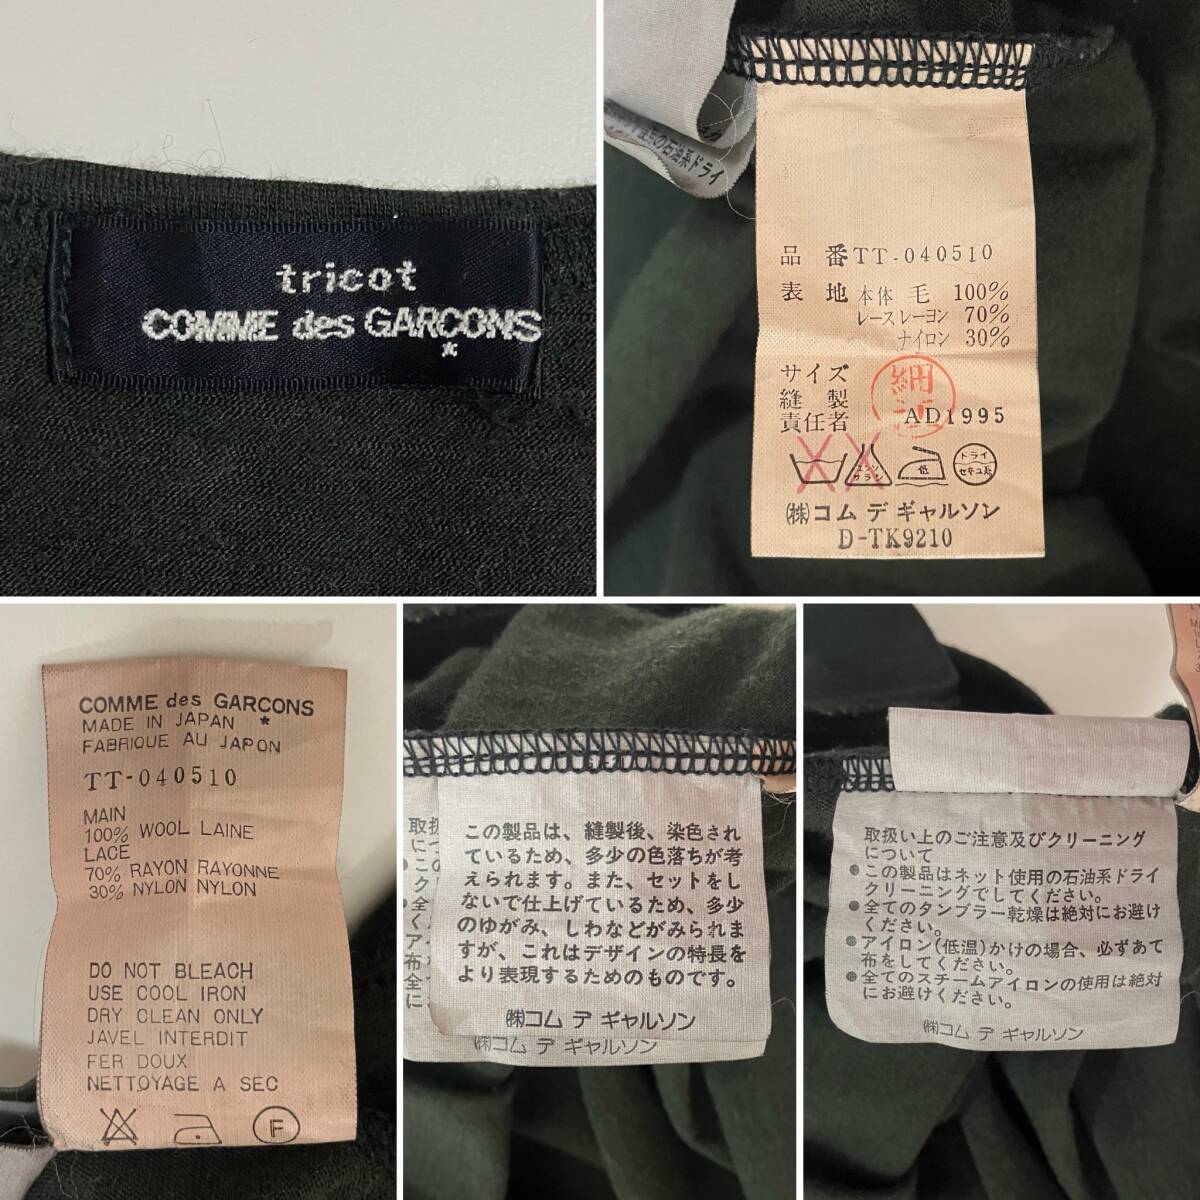 tricot
COMME des GARÇONS
*
使用の石油系ドライ
品 番 TT-040510
表 地 本体 毛 100%
レース レーヨン 70%
ナイロン 30%
サイズ
縫 製
責任者 AD1995
低
ドライ
セキユ系
㈱コム デ ギャルソン
D-TK9210
COMME des GARCONS
MADE IN JAPAN *
FABRIQUE AU JAPON
TT-040510
MAIN
100% WOOL LAINE
LACE
70% RAYON RAYONNE
30% NYLON NYLON
DO NOT BLEACH
USE COOL IRON
DRY CLEAN ONLY
JAVEL INTERDIT
FER DOUX
NETTOYAGE A SEC
F
取扱
につ
●この
ク
●全
く
ア
布
全
に
この製品は、縫製後、染色され
ているため、多少の色落ちが考
えられます。また、セットをし
ないで仕上げているため、多少
のゆがみ、しわなどがみられま
すが、これはデザインの特長を
より表現するためのものです。
㈱コム デ ギャルソン
㈱コム デ ギャルソン
取扱い上のご注意及びクリーニング
について
●この製品はネット使用の石油系ドライ
クリーニングでしてください。
●全てのタンブラー乾燥は絶対にお避け
ください。
●アイロン(低温)かけの場合、必ずあて
布をしてください。
●全てのスチームアイロンの使用は絶対
にお避けください。
㈱コム デ ギャルソン